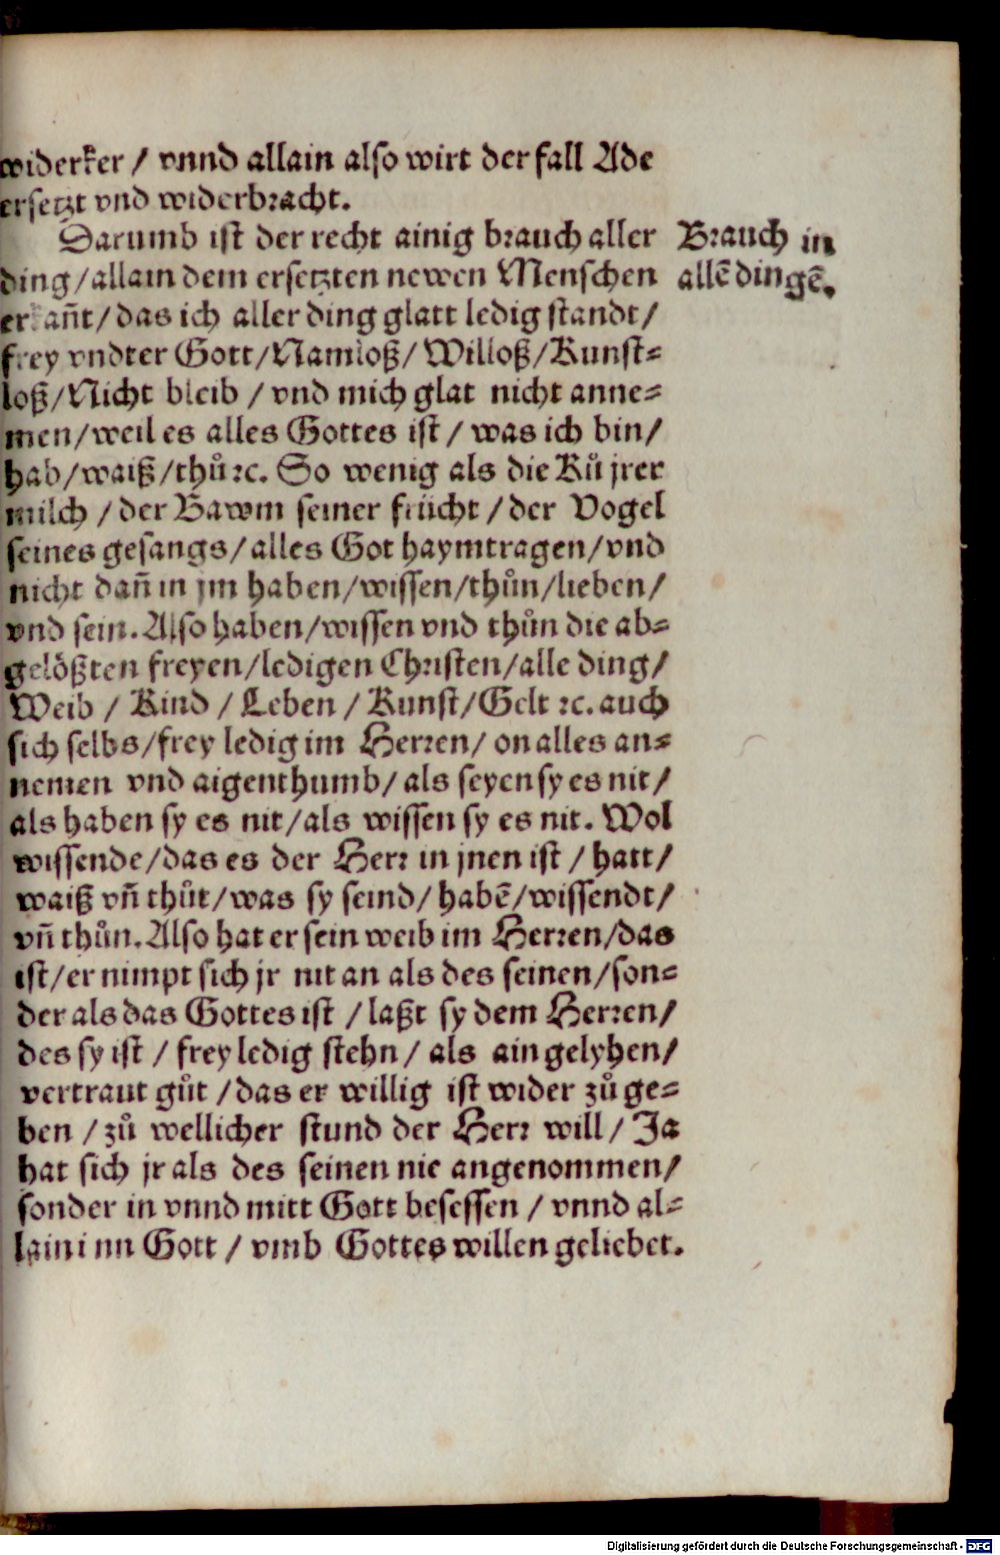 widerker / vnnd allain also wirt der fall Ade
ersetzt vnd widerbracht.
Darumb ist der recht ainig brauch aller
ding/allain dem ersetzten newen Menschen
erkañt/das ich aller ding glatt ledig standt/
frey vndter Gott/Namloß/Willoß/Kunst-
loß/Nicht bleib / vnd mich glat nicht anne-
men/weil es alles Gottes ist / was ich bin/
hab/waiß/thů ꝛc. So wenig als die Ků jrer
milch / der Bawm seiner frücht / der Vogel
seines gesangs/alles Got haymtragen/vnd
nicht dañ in jm haben/wissen/thůn/lieben/
vnd sein. Also haben/wissen vnd thůn die ab-
gelößten freyen/ledigen Christen/alle ding/
Weib / Kind / Leben / Kunst/Gelt ꝛc. auch
sich selbs/frey ledig im Herren/ on alles an-
nemen vnd aigenthumb/ als seyen sy es nit/
als haben sy es nit/als wissen sy es nit. Wol
wissende/das es der Herr in jnen ist / hatt/
waiß vñ thůt/was sy seind/ habē/wissendt/
vñ thůn. Also hat er sein weib im Herren/das
ist/er nimpt sich jr nit an als des seinen/son-
der als das Gottes ist / laßt sy dem Herren/
des sy ist / frey ledig stehn/ als ain gelyhen/
vertraut gůt / das er willig ist wider zů ge-
ben / zů wellicher stund der Herr will/ Ja
hat sich jr als des seinen nie angenommen/
sonder in vnnd mitt Gott besessen / vnnd al-
lain inn Gott / vmb Gottes willen geliebet.
Brauch in
allē dingē.
Digitalisierung gefördert durch die Deutsche Forschungsgemeinschaft - DFG